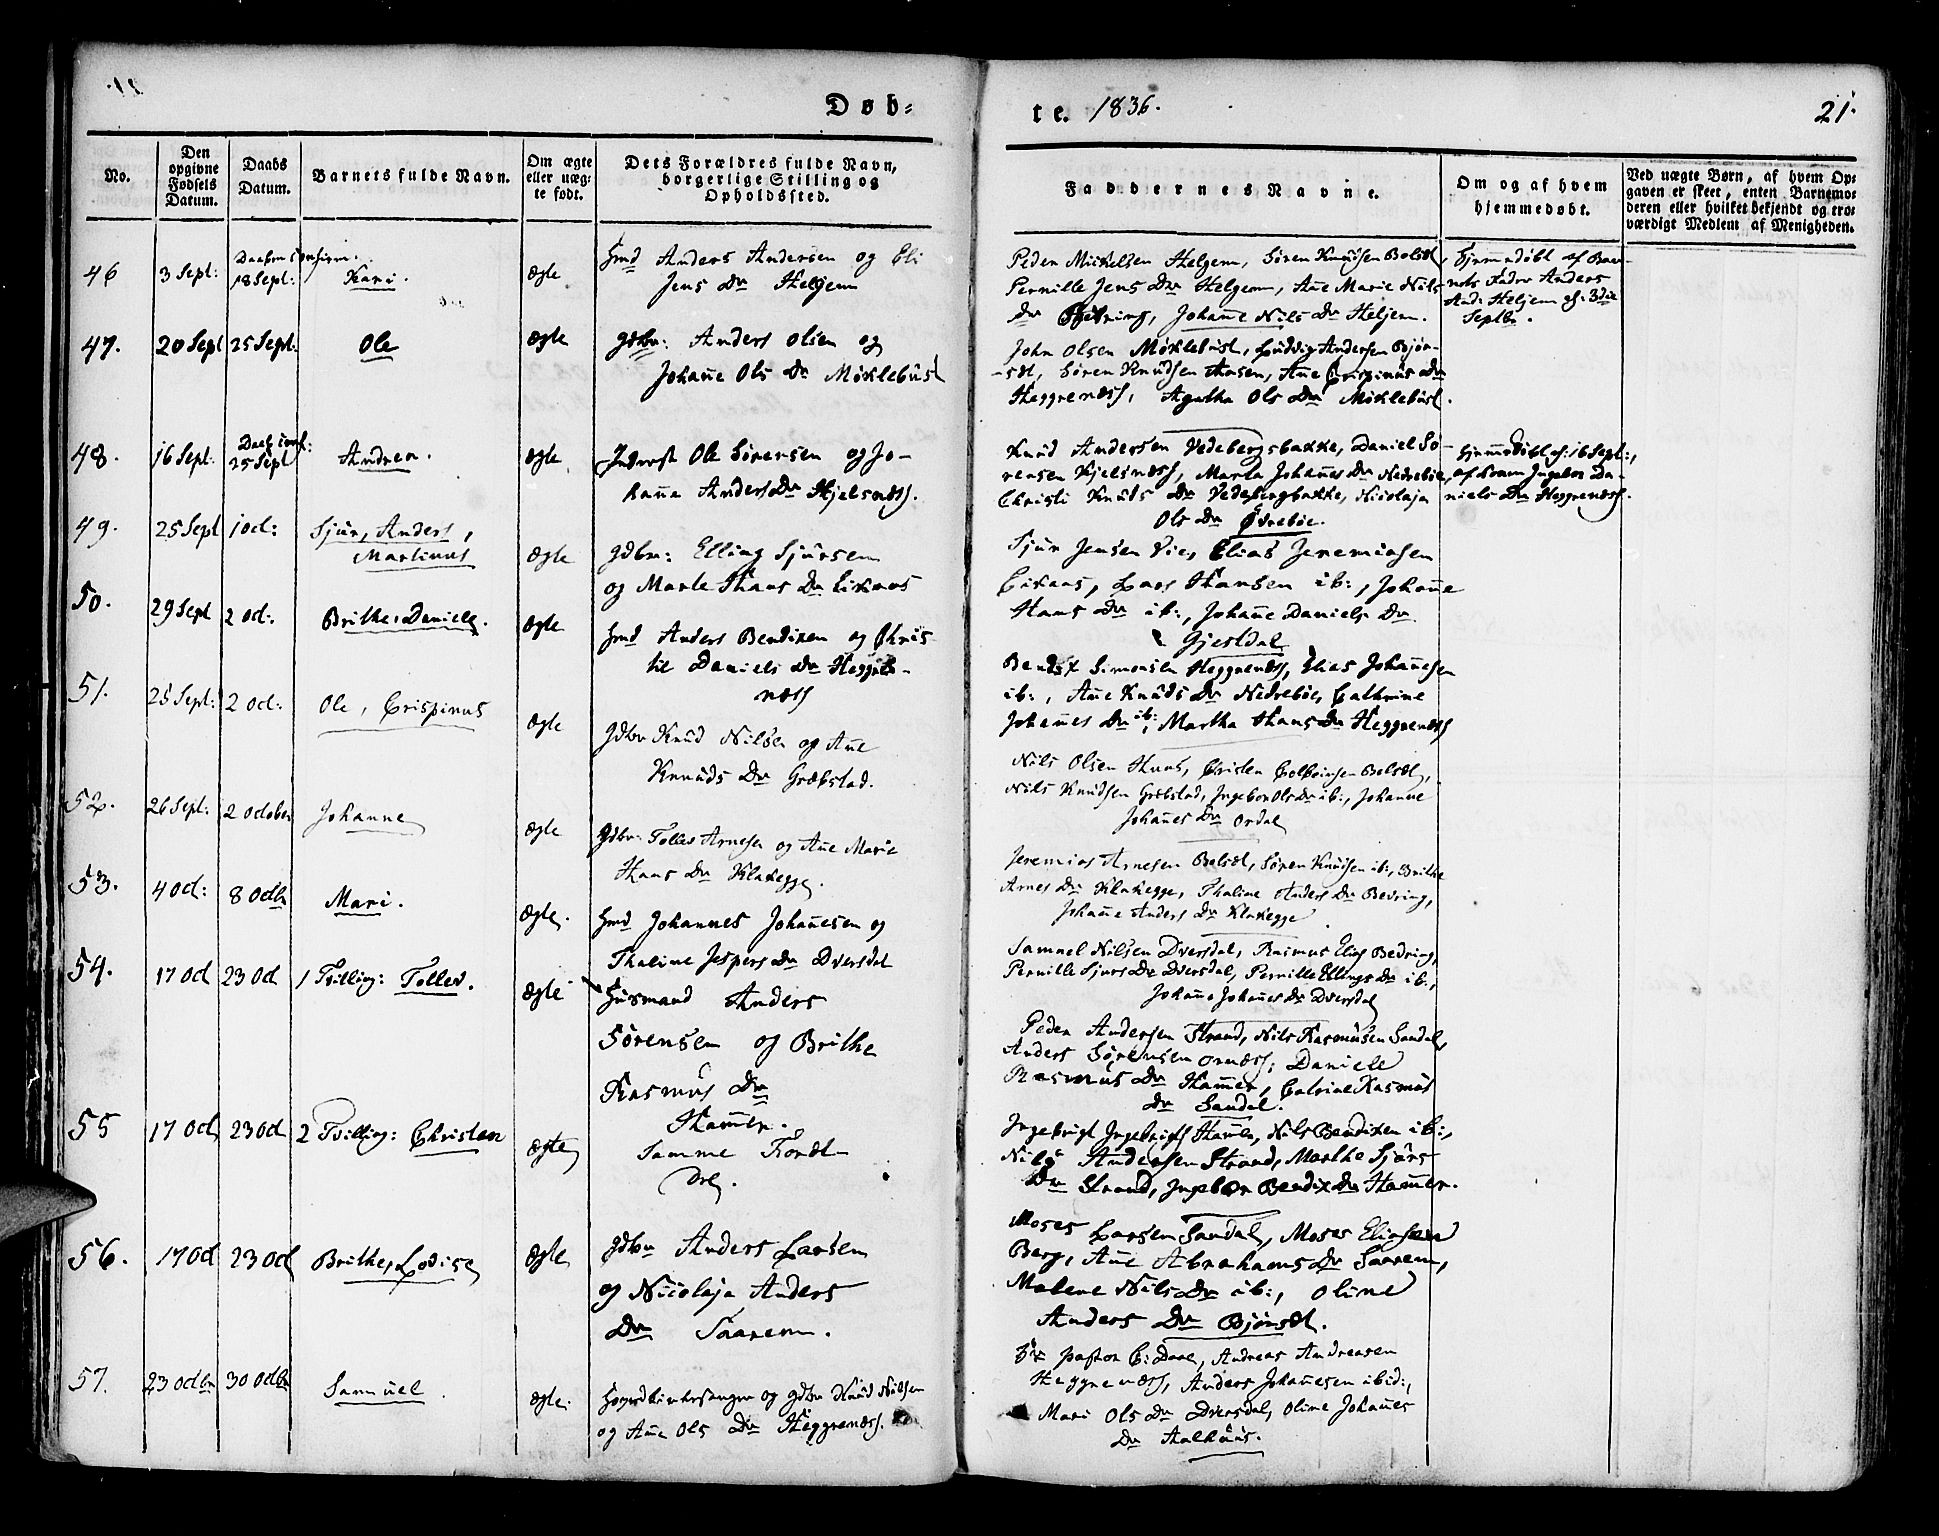 Døb=
te. 1836.
21.
No.
Den opgivne Fødsels Datum.
Daabs Datum.
Barnets fulde Navn.
Om ægte eller uæg= te født.
Dets Forældres fulde Navn, borgerlige Stilling og Opholdssted.
Faddernes Navne.
Om og af hvem hjemmedøbt.
Ved uægte Børn, af hvem Op= gaven er skeet, enten Barnemo= deren eller hvilket bekjendt og tro= værdigt Medlem af Menigheden.
46 3 Sept: 18 Sept: Kari. Ægte
Hmd Anders Andersen og Eli
Jens Dr Helgem
Peder Mickelsen Helgem, Sören Knudsen Bolsæt,
Pernille Jens Dr Helgem, Ane Marie Nils
Dr Bedring, Johanne Nils Dr Heljem.
Hjemmedøbt af Bar-
nets Fader Anders
And: Heljem d: 3die
Septbr.
47. 20 Sept 25 Sept: Ole Ægte
Gdbr: Anders Olsen og
Johanne Ols Dr Møklebust
John Olsen Møklebust, Ludvig Andersen Bjør-
-sæt, Sören Knudsen Aasen, Ane Crispinus Dr
Heggrenæss, Agatha Ols Dr Møklebust.
48. 16 Sept: 25 Sept Andrea. Ægte
Inderst Ole Sörensen og Jo-
hanne Anders Dr Hjelsnæss.
Knud Andersen Vedebergsbakke, Daniel Sö-
rensen Kjelsnæss, Marta Johannes Dr Nedrebøe,
Christi Knuds Dr Vedebergbakke, Nicolaja
Ols Dr Øvrebøe.
Hjemmedöbt d: 16 Sept:,
af Ingebor Da-
niels Dr Heggrenæss.
49. 25 Sept 1 Oct: Sjur, Anders,
Martinus Ægte
Gdbr: Elling Sjursen
og Marte Hans Dr Eikaas
Sjur Jensen Vie, Elias Jeremiasen
Eikaas, Lars Hansen ib:, Johanne
Hans Dr ib:, Johanne Daniels Dr
Gjesdal
50. 29 Sept 2 Oct: Brithe, Daniele. Ægte
Hmd Anders Bendixen og Chris
til Daniels Dr Heggre-
næss
Bendix Simonsen Heggrenæss, Elias Johannesen
ib:, Ane Knuds Dr Nedrebøe, Cathrine
Johannes Dr ib:, Martha Hans Dr Heggrenæss
51. 25 Sept: 2 Oct: Ole, Crispinus Ægte
Gdbr Knud Nilsen og Ane
Knuds Dr Grøbstad.
Nils Olsen Huus, Cristen Bolsæt,
Nils Knudsen Grøbstad, Ingebor Ols Dr ib:, Johanne
Johannes Dr Ordal
52. 26 Sept: 2 October Johanne Ægte
Gdbr: Tollev Arnesen og Ane Marie
Hans Dr Klakegge.
Jeremias Arnesen Bolsæt, Sören Knudsen ib:, Brithe
Arnes Dr Klakegge, Thaline Anders Dr Bedring,
Johanne Anders Dr Klakegge
53. 4 Oct: 8 Octbr Mari. Ægte.
Hmd Johannes Johannesen og
Thaline Jespers Dr Dversdal
Samuel Nilsen Dversdal, Rasmus Elias Bedring,
Pernille Sjurs Dr Dversdal, Pernille Ellings Dr ib:,
Johanne Johannes Dr Dversdal
54. 17 Oct 23 Oct 1 Tvilling: Tollev. Ægte
Huusmand Anders
Sörensen og Brithe
Rasmus Dr
Hammer.
Peder Andersen Strand, Nils Rasmusen Sandal,
Anders Sörensen Ornæss, Daniele
Rasmus Dr Hammer, Catrine Rasmus
Dr Sandal.
55 17 Oct 23 Oct 2 Tvilling: Christen Ægte
Samme Foræl-
dre.
Ingebrigt Ingebrigts Hammer, Nils Bendixen ib:,
Nils Andersen Strand, Marthe Sjurs
Dr Strand, Ingebor Bendix Dr Hammer.
56. 17 Oct 23 Oct Brithe, Lovise Ægte
Gdbr Anders Larsen
og Nicolaja Anders
Dr Saarem.
Moses Larsen Sandal, Moses Eliassen
Berg, Ane Abrahams Dr Saarem,
Malene Nils Dr ib:, Oline
Anders Dr Bjørsæt.
57. 23 Octbr 30 Octbr Samuel. Ægte.
og Gdbr Knud Nilsen
og Ane Ols Dr Heggrenæss.
Hr Pastor C: Daae, Andreas Andreasen
Heggrenæss, Anders Johannesen ibid:,
Mari Ols Dr Dversdal, Oline Johannes
Dr Aalhuus.